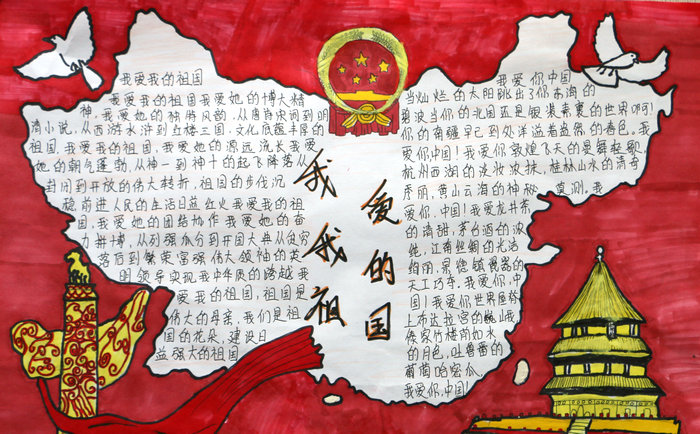 我爱我的祖国
我爱我的祖国我爱她的博大精
神,我爱她的独特风韵,从唐诗宋词到明
清小说,从西游水浒到红楼三国,文化底蕴丰厚的
祖国,我爱我的祖国,我爱她的源远流长我爱
她的朝气蓬勃,从神一到神十的起飞降落从
封闭到开放的伟大转折,祖国的步伐沉
稳前进人民的生活日益红火我爱我的祖
国,我爱她的团结协作我爱她的奋
力拼搏,从列强瓜分到开国大典从贫穷
落后到繁荣富强伟大领袖的英
明领导实现我中华质的跨越我
爱我的祖国,祖国是
伟大的母亲,我们是祖
国的花朵,建设日
益强大的祖国
我爱
我的
祖国
我爱你中国
当灿烂的太阳跳出了你东海的
碧波当你的北国还是银装素裹的世界啊
你的南疆早已到处洋溢着盎然的春色,我
爱你,中国!我爱你敦煌飞天的曼舞轻歌
杭州西湖的淡妆浓抹,桂林山水的清奇
秀丽,黄山云海的神秘莫测,我
爱你,中国!我爱龙井茶
的清甜,茅台酒的浓
纯,江南丝绸的光洁
绚丽,景德镇瓷器的
天工巧夺,我爱你,中
国!我爱你世界屋脊
上布达拉宫的巍巍我
傣家竹楼前如水
的月色,吐鲁番的
葡萄哈密瓜,
我爱你,中国!